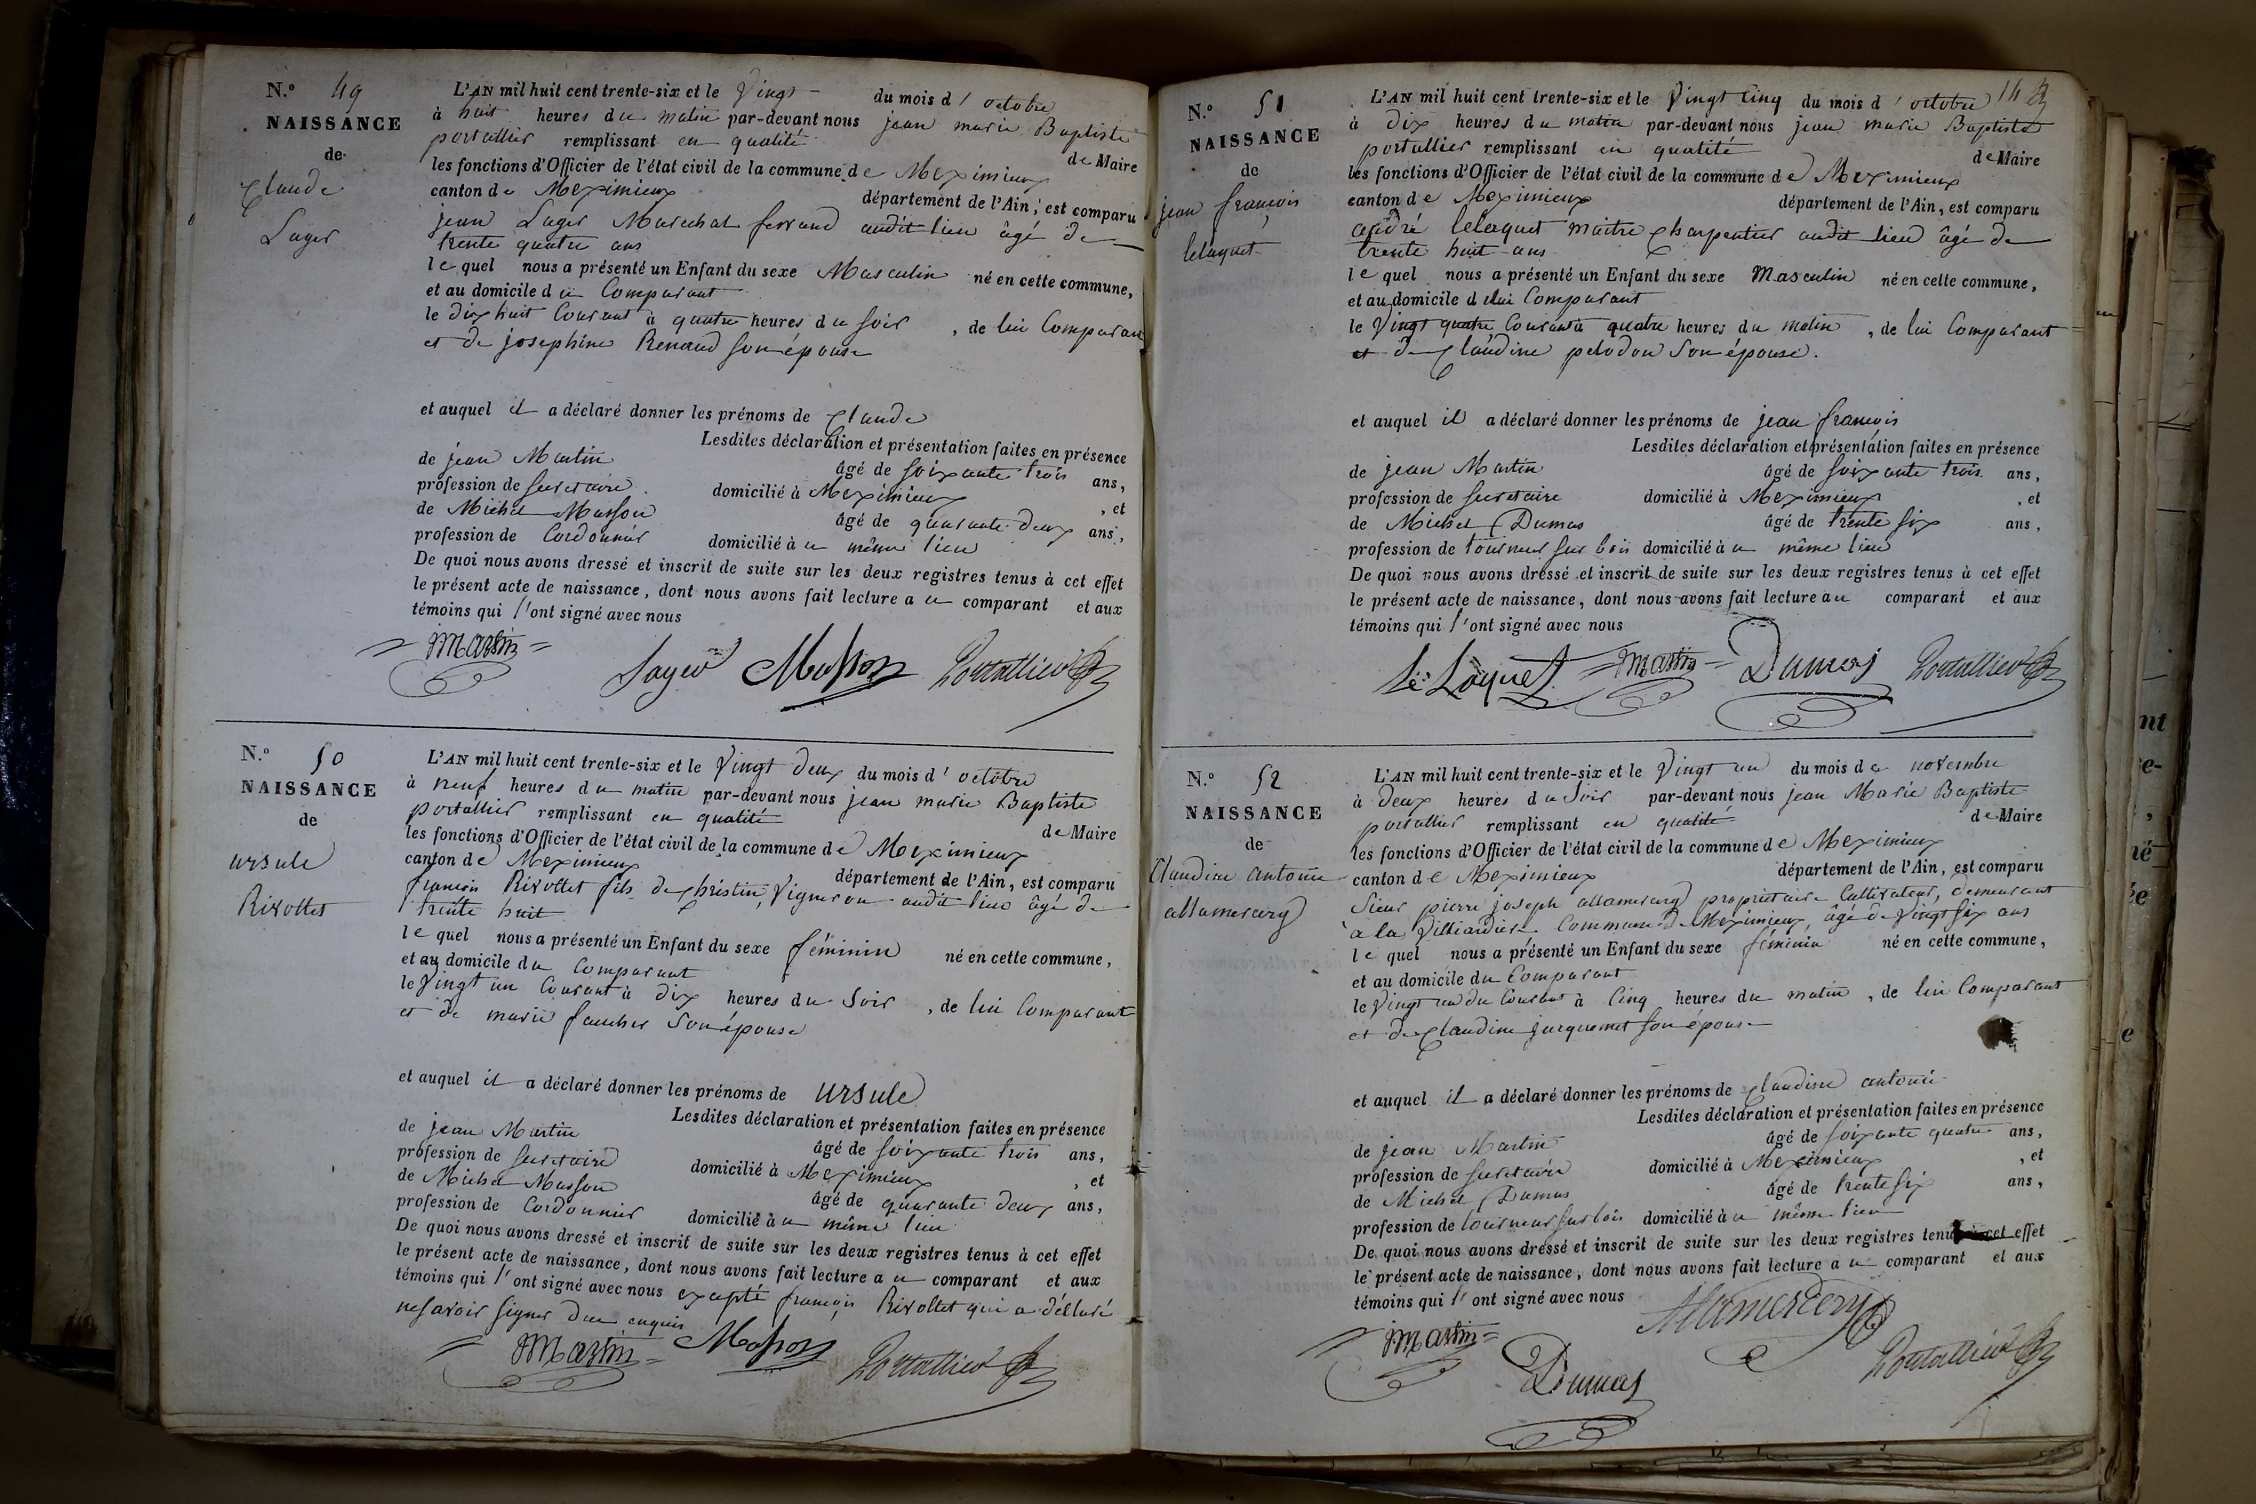 N.º 49
NAISSANCE
de
Claude
Lager
L'AN mil huit cent trente-six et le Vingt du mois d'octobre
à huit heures du matin par-devant nous jean marie Baptiste
portallier remplissant en qualité de Maire
les fonctions d'Officier de l'état civil de la commune de Meximieux
canton de Meximieux département de l'Ain, est comparu
jean Lager Marechal ferrand audit lieu âgé de
trente quatre ans
lequel nous a présenté un Enfant du sexe Masculin né en cette commune,
et au domicile du Comparant
le dix huit Courant à quatre heures du soir, de lui Comparant
et de josephine Renaud son épouse
et auquel il a déclaré donner les prénoms de Claude
Lesdites déclaration et présentation faites en présence
de jean Martin âgé de soixante trois ans,
profession de secretaire domicilié à Meximieux, et
de Michel Masson âgé de quarante deux ans,
profession de Cordonnier domicilié à u même lieu
De quoi nous avons dressé et inscrit de suite sur les deux registres tenus à cet effet
le présent acte de naissance, dont nous avons fait lecture au comparant et aux
témoins qui l'ont signé avec nous
Martin Layer Masson Portallier
N.º 50
NAISSANCE
de
ursule
Rivollet
L'AN mil huit cent trente-six et le Vingt deux du mois d'octobre
à neuf heures du matin par-devant nous jean marie Baptiste
portallier remplissant en qualité de Maire
les fonctions d'Officier de l'état civil de la commune de Meximieux
canton de Meximieux département de l'Ain, est comparu
françois Rivollet fils de Christin, Vigneron audit lieu âgé de
trente huit
lequel nous a présenté un Enfant du sexe féminin né en cette commune,
et au domicile du Comparant
le Vingt un Courant à dix heures du soir, de lui Comparant
et de marie faucher son épouse
et auquel il a déclaré donner les prénoms de ursule
Lesdites déclaration et présentation faites en présence
de jean Martin âgé de soixante trois ans,
profession de secretaire domicilié à Meximieux, et
de Michel Masson âgé de quarante deux ans,
profession de Cordonnier domicilié à u même lieu
De quoi nous avons dressé et inscrit de suite sur les deux registres tenus à cet effet
le présent acte de naissance, dont nous avons fait lecture au comparant et aux
témoins qui l'ont signé avec nous excepté françois Rivollet qui a déclaré
ne savoir signer de ce enquis
Martin Masson Portallier
14
N.º 51
NAISSANCE
de
jean françois
lelaquet
L'AN mil huit cent trente-six et le Vingt Cinq du mois d'octobre
à dix heures du matin par-devant nous jean marie Baptiste
portallier remplissant en qualité de Maire
les fonctions d'Officier de l'état civil de la commune de Meximieux
canton de Meximieux département de l'Ain, est comparu
andré lelaquet maitre Charpentier audit lieu âgé de
trente huit ans
lequel nous a présenté un Enfant du sexe Masculin né en cette commune,
et au domicile d elui Comparant
le Vingt quatre Courant à quatre heures du matin, de lui Comparant
et de Claudine pelodon Son épouse.
et auquel il a déclaré donner les prénoms de jean françois
Lesdites déclaration et présentation faites en présence
de jean Martin âgé de soixante trois ans,
profession de secretaire domicilié à Meximieux, et
de Michel Dumas âgé de trente six ans,
profession de tourneur sur bois domicilié à u même lieu
De quoi nous avons dressé et inscrit de suite sur les deux registres tenus à cet effet
le présent acte de naissance, dont nous avons fait lecture au comparant et aux
témoins qui l'ont signé avec nous
Le Laquet Martin Dumas Portallier
N.º 52
NAISSANCE
de
Claudine antonie
allamercery
L'AN mil huit cent trente-six et le Vingt un du mois de novembre
à deux heures du Soir par-devant nous jean Marie Baptiste
portallier remplissant en qualité de Maire
les fonctions d'Officier de l'état civil de la commune de Meximieux
canton de Meximieux département de l'Ain, est comparu
Sieur pierre joseph allamercery propriétaire Cultivateur, demeurant
à la Villiardière Commune de Meximieux, âgé de Vingt six ans
lequel nous a présenté un Enfant du sexe féminin né en cette commune,
et au domicile du Comparant
le Vingt un du Courant à Cinq heures du matin, de lui Comparant
et de Claudine jurquemet son épouse
et auquel il a déclaré donner les prénoms de Claudine antonie
Lesdites déclaration et présentation faites en présence
de jean Martin âgé de soixante quatre ans,
profession de secretaire domicilié à Meximieux, et
de Michel Dumas âgé de trente six ans,
profession de tourneur sur bois domicilié à u même lieu
De quoi nous avons dressé et inscrit de suite sur les deux registres tenus à cet effet
le présent acte de naissance, dont nous avons fait lecture au comparant et aux
témoins qui l'ont signé avec nous
Allamercery
Martin Dumas Portallier